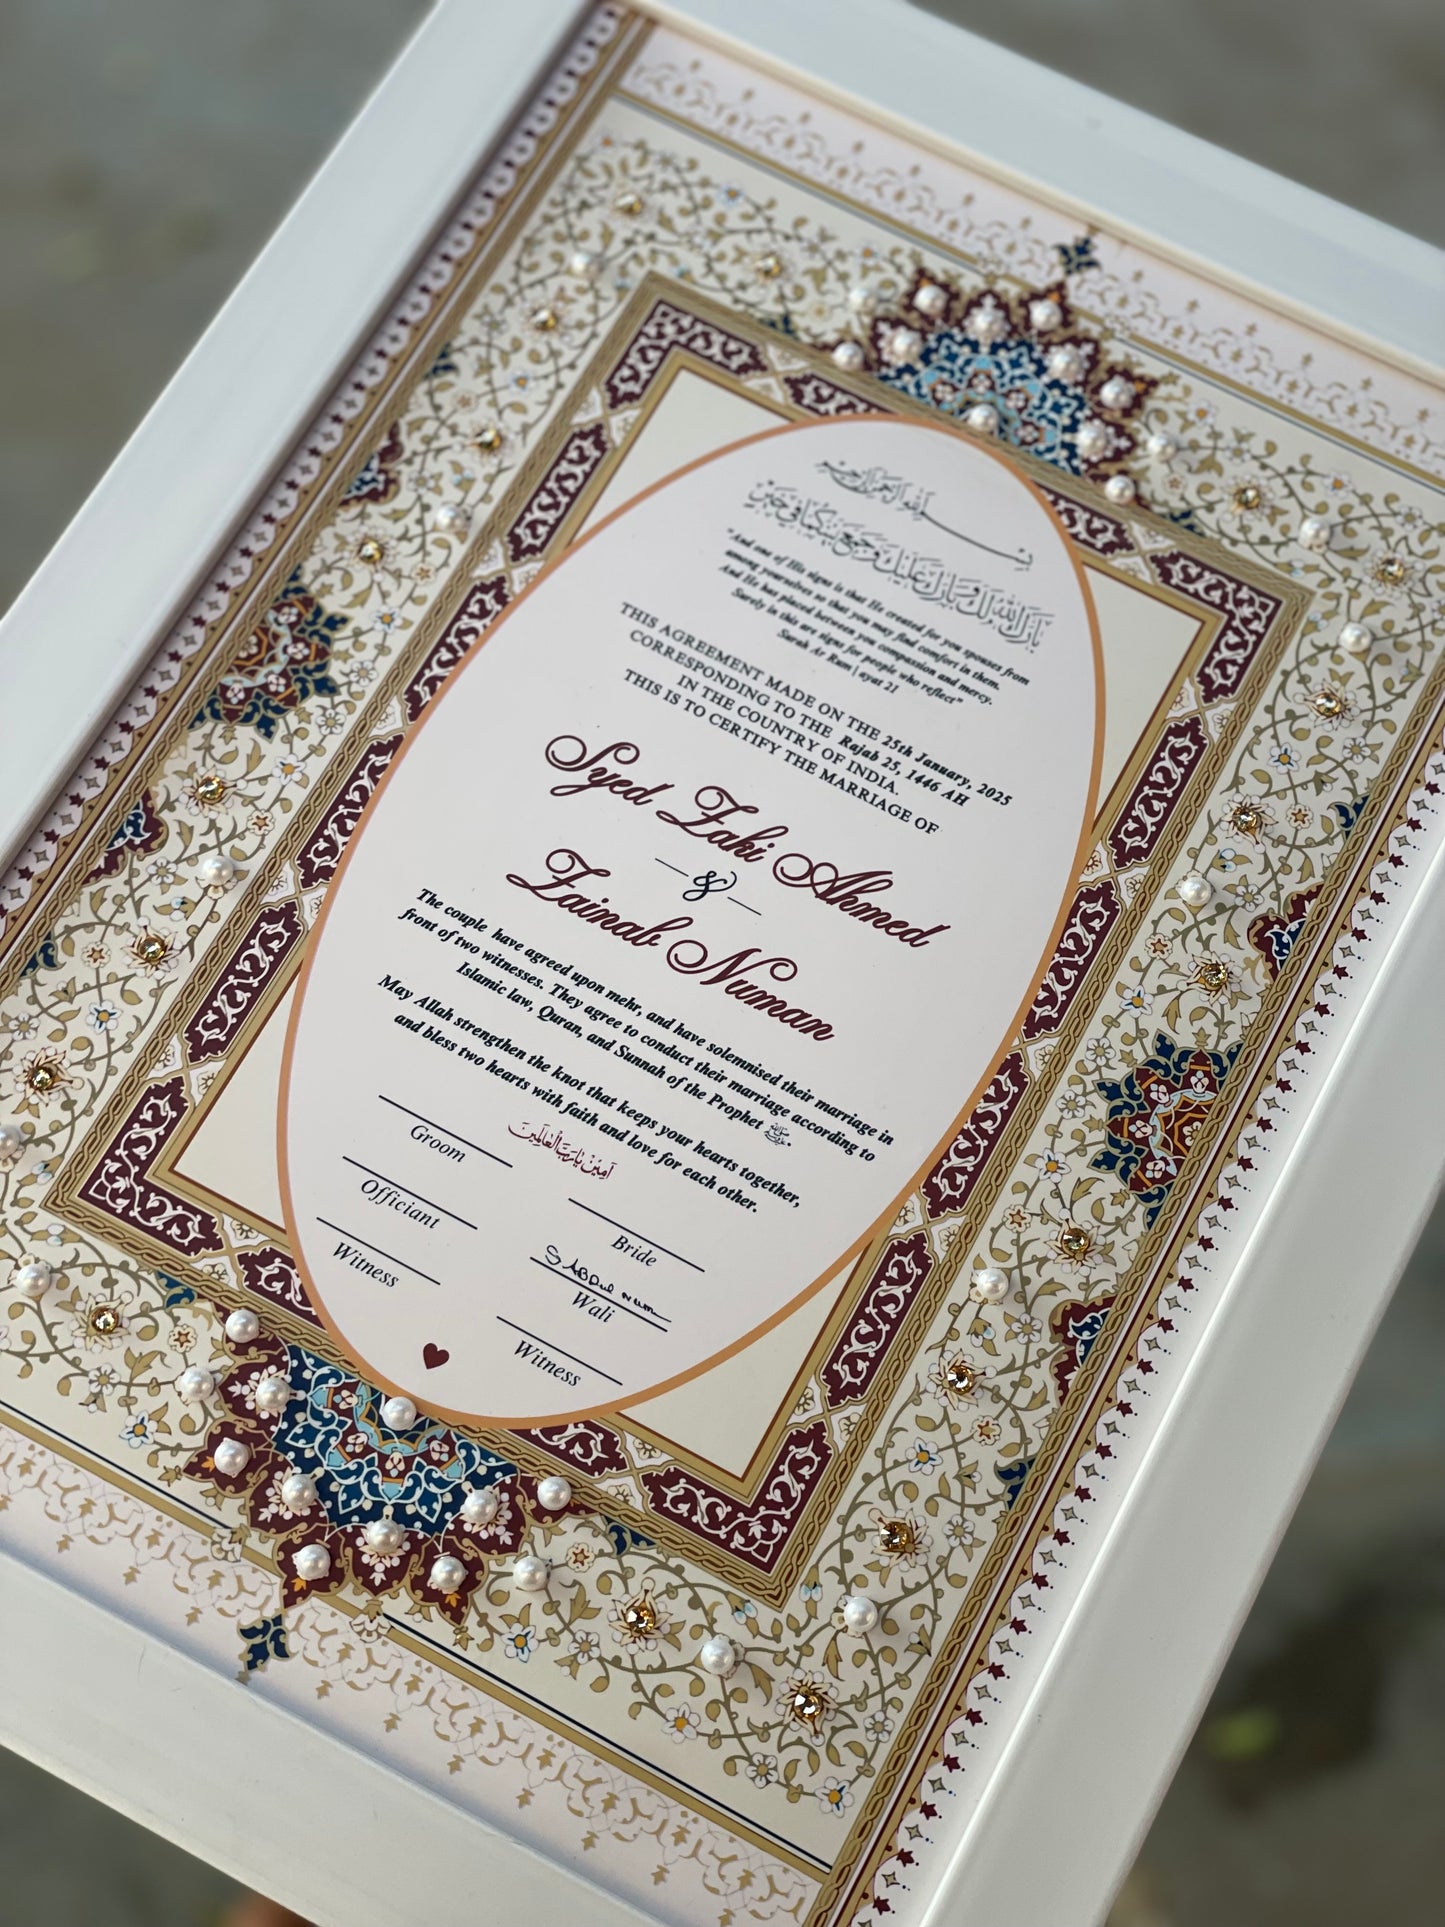 بسم الله الرحمن الرحيم
بارك الله لك وبارك عليك وجمع بينكما في خير
"And one of His signs is that He created for you spouses from
among yourselves so that you may find comfort in them.
And He has placed between you compassion and mercy.
Surely in this are signs for people who reflect"
Surah Ar Rum | ayat 21
THIS AGREEMENT MADE ON THE 25th January, 2025
CORRESPONDING TO THE Rajab 25, 1446 AH
IN THE COUNTRY OF INDIA.
THIS IS TO CERTIFY THE MARRIAGE OF
Syed Zaki Ahmed
&
Zainab Numan
The couple have agreed upon mehr, and have solemnised their marriage in
front of two witnesses. They agree to conduct their marriage according to
Islamic law, Quran, and Sunnah of the Prophet ﷺ.
May Allah strengthen the knot that keeps your hearts together,
and bless two hearts with faith and love for each other.
آمين يا رب العالمين
Groom
Bride
Officiant
Wali
Witness
Witness